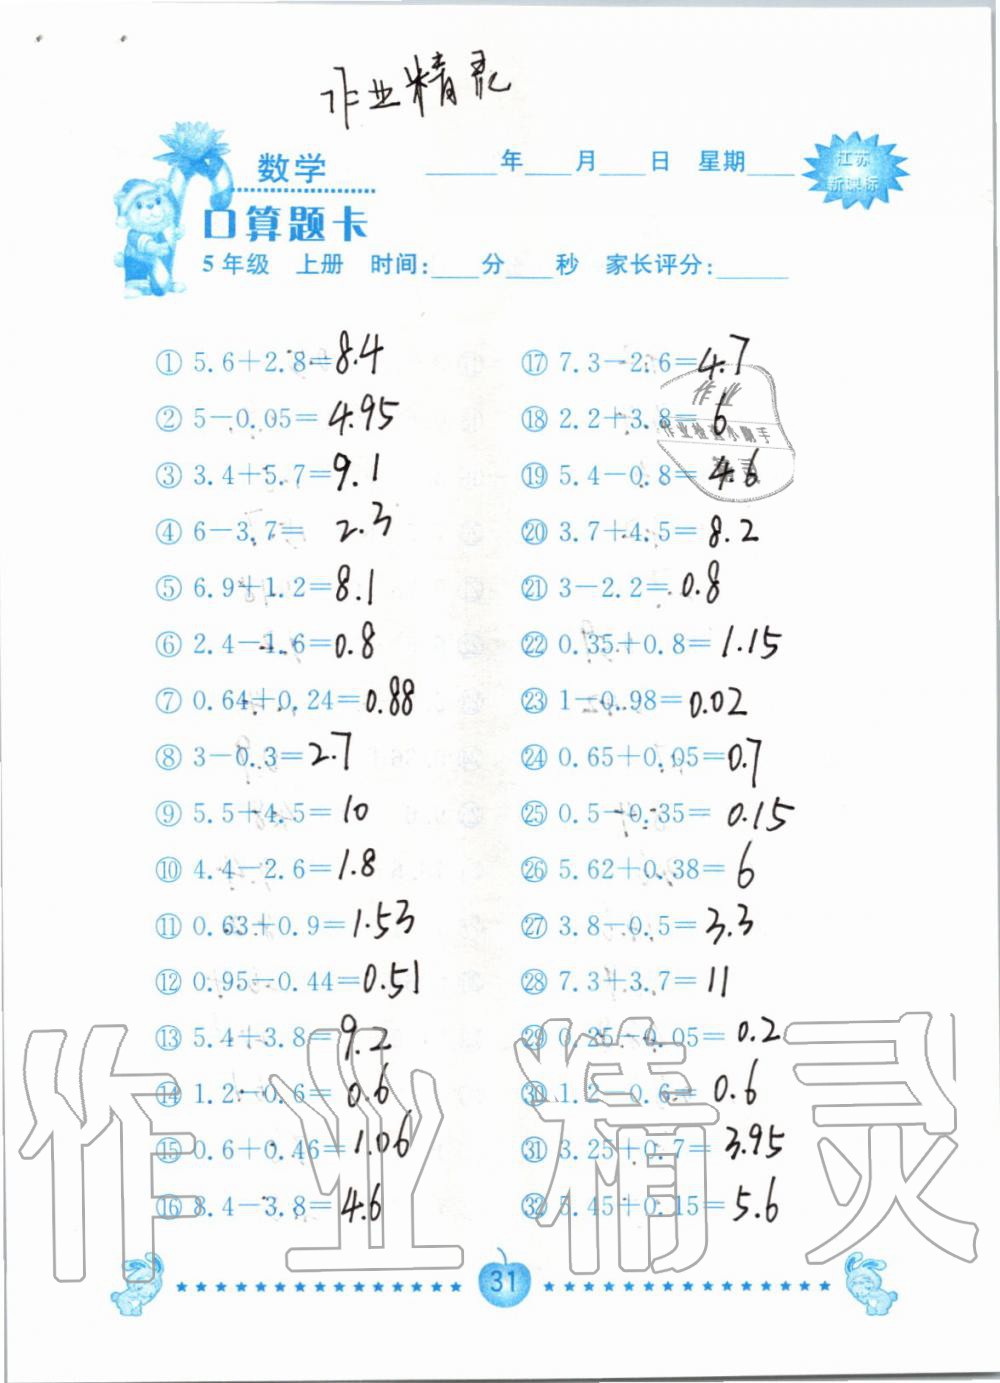 作业精灵
数学
年 月 日 星期
江苏
新课标
口算题卡
5年级 上册 时间: 分 秒 家长评分:
① 5.6+2.8=8.4
② 5-0.05=4.95
③ 3.4+5.7=9.1
④ 6-3.7=2.3
⑤ 6.9+1.2=8.1
⑥ 2.4-1.6=0.8
⑦ 0.64+0.24=0.88
⑧ 3-0.3=2.7
⑨ 5.5+4.5=10
⑩ 4.4-2.6=1.8
⑪ 0.63+0.9=1.53
⑫ 0.95-0.44=0.51
⑬ 5.4+3.8=9.2
⑭ 1.2-0.6=0.6
⑮ 0.6+0.46=1.06
⑯ 8.4-3.8=4.6
⑰ 7.3-2.6=4.7
⑱ 2.2+3.8=6
⑲ 5.4-0.8=4.6
⑳ 3.7+4.5=8.2
㉑ 3-2.2=0.8
㉒ 0.35+0.8=1.15
㉓ 1-0.98=0.02
㉔ 0.65+0.05=0.7
㉕ 0.5-0.35=0.15
㉖ 5.62+0.38=6
㉗ 3.8-0.5=3.3
㉘ 7.3+3.7=11
㉙ 0.25-0.05=0.2
㉚ 1.2-0.6=0.6
㉛ 3.25+0.7=3.95
㉜ 5.45+0.15=5.6
作业
作业检查小助手
作业精灵
31